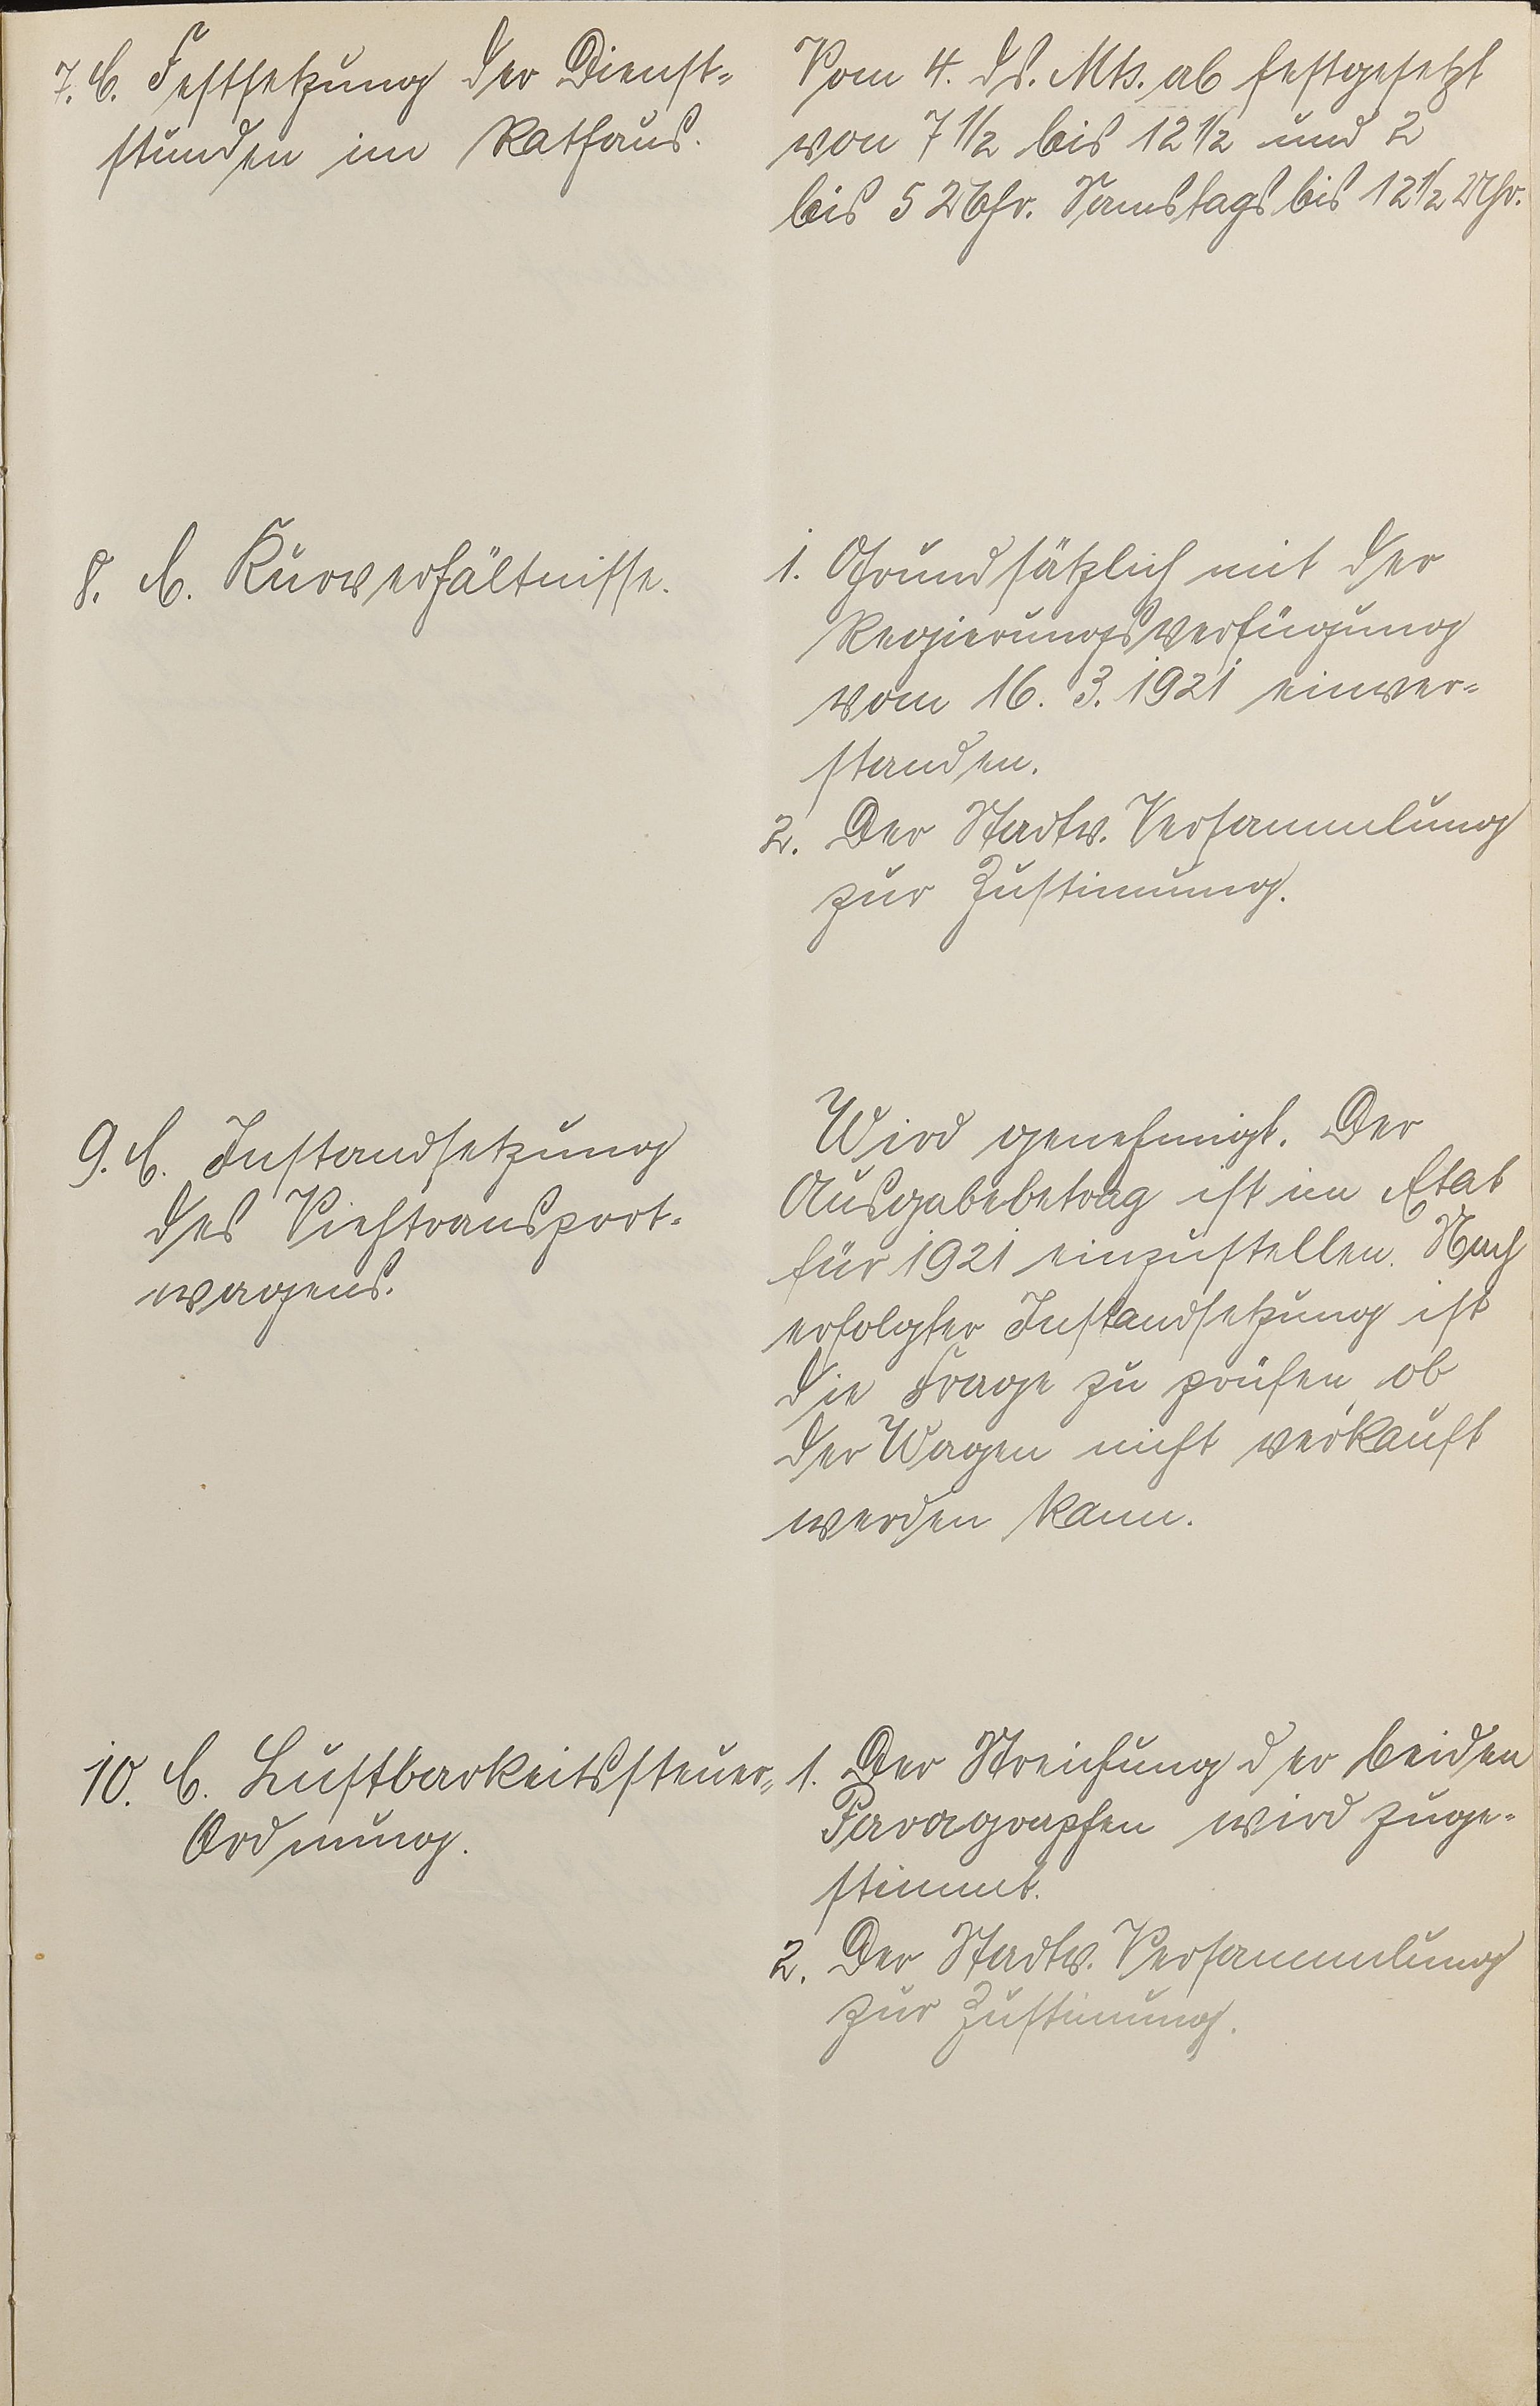 7. b. Festsetzung der Dienst-
stunden im Rathaus.
Vom 4. ds. Mts. ab festgesetzt
von 7 1/2 bis 12 1/2 und 2
bis 5 Uhr. Samstags bis 12 1/2 Uhr.
8. b. Kurverhältnisse.
1. Grundsätzlich mit der
Regierungsverfügung
vom 16. 3. 1921 einver-
standen.
2. Der Stadtv. Versammlung
zur Zustimmung.
9. b. Instandsetzung
des Viehtransport-
wagens.
Wird genehmigt. Der
Ausgabebetrag ist im Etat
für 1921 einzustellen. Nach
erfolgter Instandsetzung ist
die Frage zu prüfen, ob
der Wagen nicht verkauft
werden kann.
10. b. Lustbarkeitssteuer-
Ordnung.
1. Der Streichung der beiden
Paragraphen wird zuge-
stimmt.
2. Der Stadtv. Versammlung
zur Zustimmung.